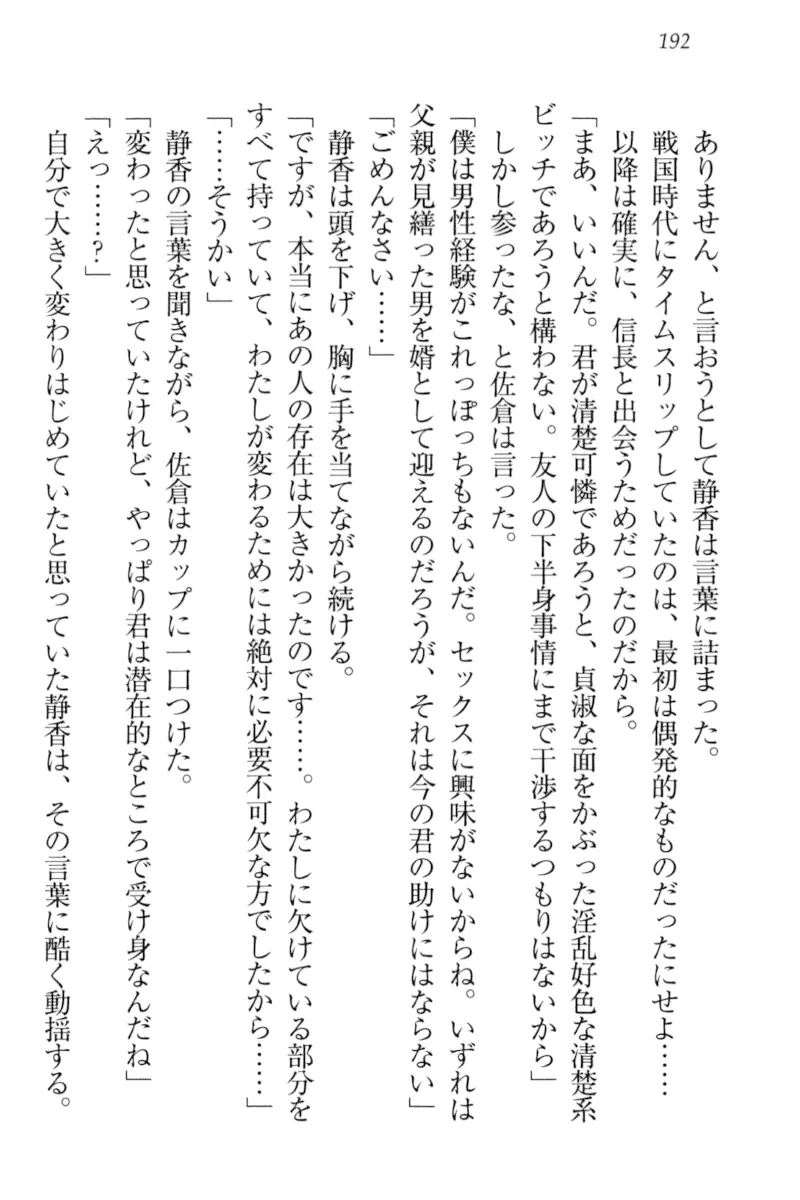 192
ありません、と言おうとして静香は言葉に詰まった。
戦国時代にタイムスリップしていたのは、最初は偶発的なものだったにせよ……
以降は確実に、信長と出会うためだったのだから。
「まあ、いいんだ。君が清楚可憐であろうと、貞淑な面をかぶった淫乱好色な清楚系
ビッチであろうと構わない。友人の下半身事情にまで干渉するつもりはないから」
しかし参ったな、と佐倉は言った。
「僕は男性経験がこれっぽっちもないんだ。セックスに興味がないからね。いずれは
父親が見繕った男を婿として迎えるのだろうが、それは今の君の助けにはならない」
「ごめんなさい……」
静香は頭を下げ、胸に手を当てながら続ける。
「ですが、本当にあの人の存在は大きかったのです……。わたしに欠けている部分を
すべて持っていて、わたしが変わるためには絶対に必要不可欠な方でしたから……」
「……そうかい」
静香の言葉を聞きながら、佐倉はカップに一口つけた。
「変わったと思っていたけれど、やっぱり君は潜在的なところで受け身なんだね」
「えっ……？」
自分で大きく変わりはじめていたと思っていた静香は、その言葉に酷く動揺する。